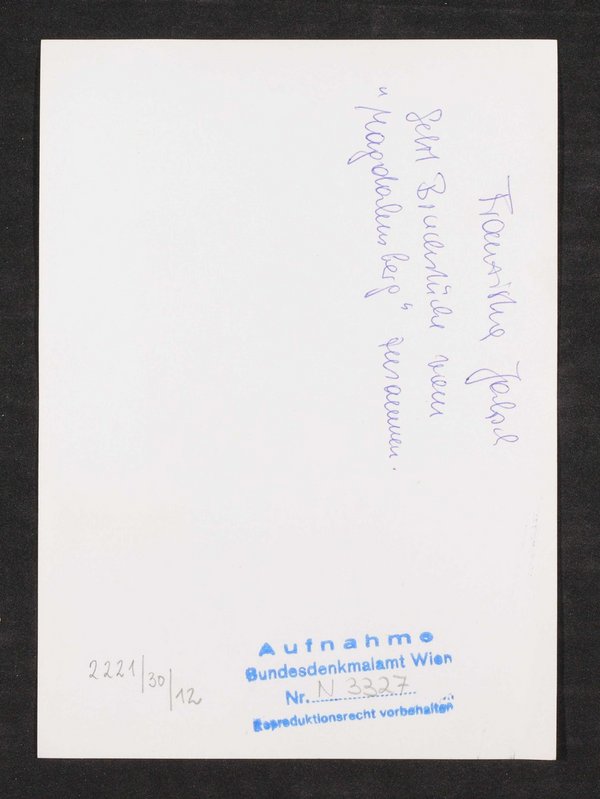 Franziska Jabsel
setzt Bruchstücke vom
"Magdalensberg" zusammen.
Aufnahme
Bundesdenkmalamt Wien
Nr. N 3327
Reproduktionsrecht vorbehalten
2221/30/12